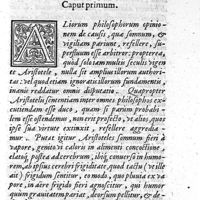 Caput primum.
ALiorum philosophorum opinio-
nem de causis, quæ somnum, &
vigiliam pariunt, refellere, su-
perfluum esse arbitror: propterea,
quòd solo iam multis seculis vigen
te Aristotele, nulla sit amplius illorum authori-
tas: vel quod etiam ignoratis illorum fundamentis,
inanis reddatur omnis disputatio. Quapropter
Aristotelis sententiam inter omnes philosophos ex-
cutiendam esse duco, quam si parùm probabi-
lem esse ostendemus, non erit profectò, vt alios, quos
ipse sua virtute extinxit, refellere aggredia-
mur. Putat igitur Aristoteles somnum fieri à
vapore, genito vi caloris in alimenti concoctione,
elatoq; postea ad cerebrum, ibiq; conuerso in humo-
rem, ab ipsius cerebri frigiditate, quod tactu (ve luti
ait) frigidum sentitur, eo modo, quo pluuia ex va-
pore, in aëre frigido fieri agnoscitur, qui humor
quum grauitatem pariat, deorsum pellitur, & de-